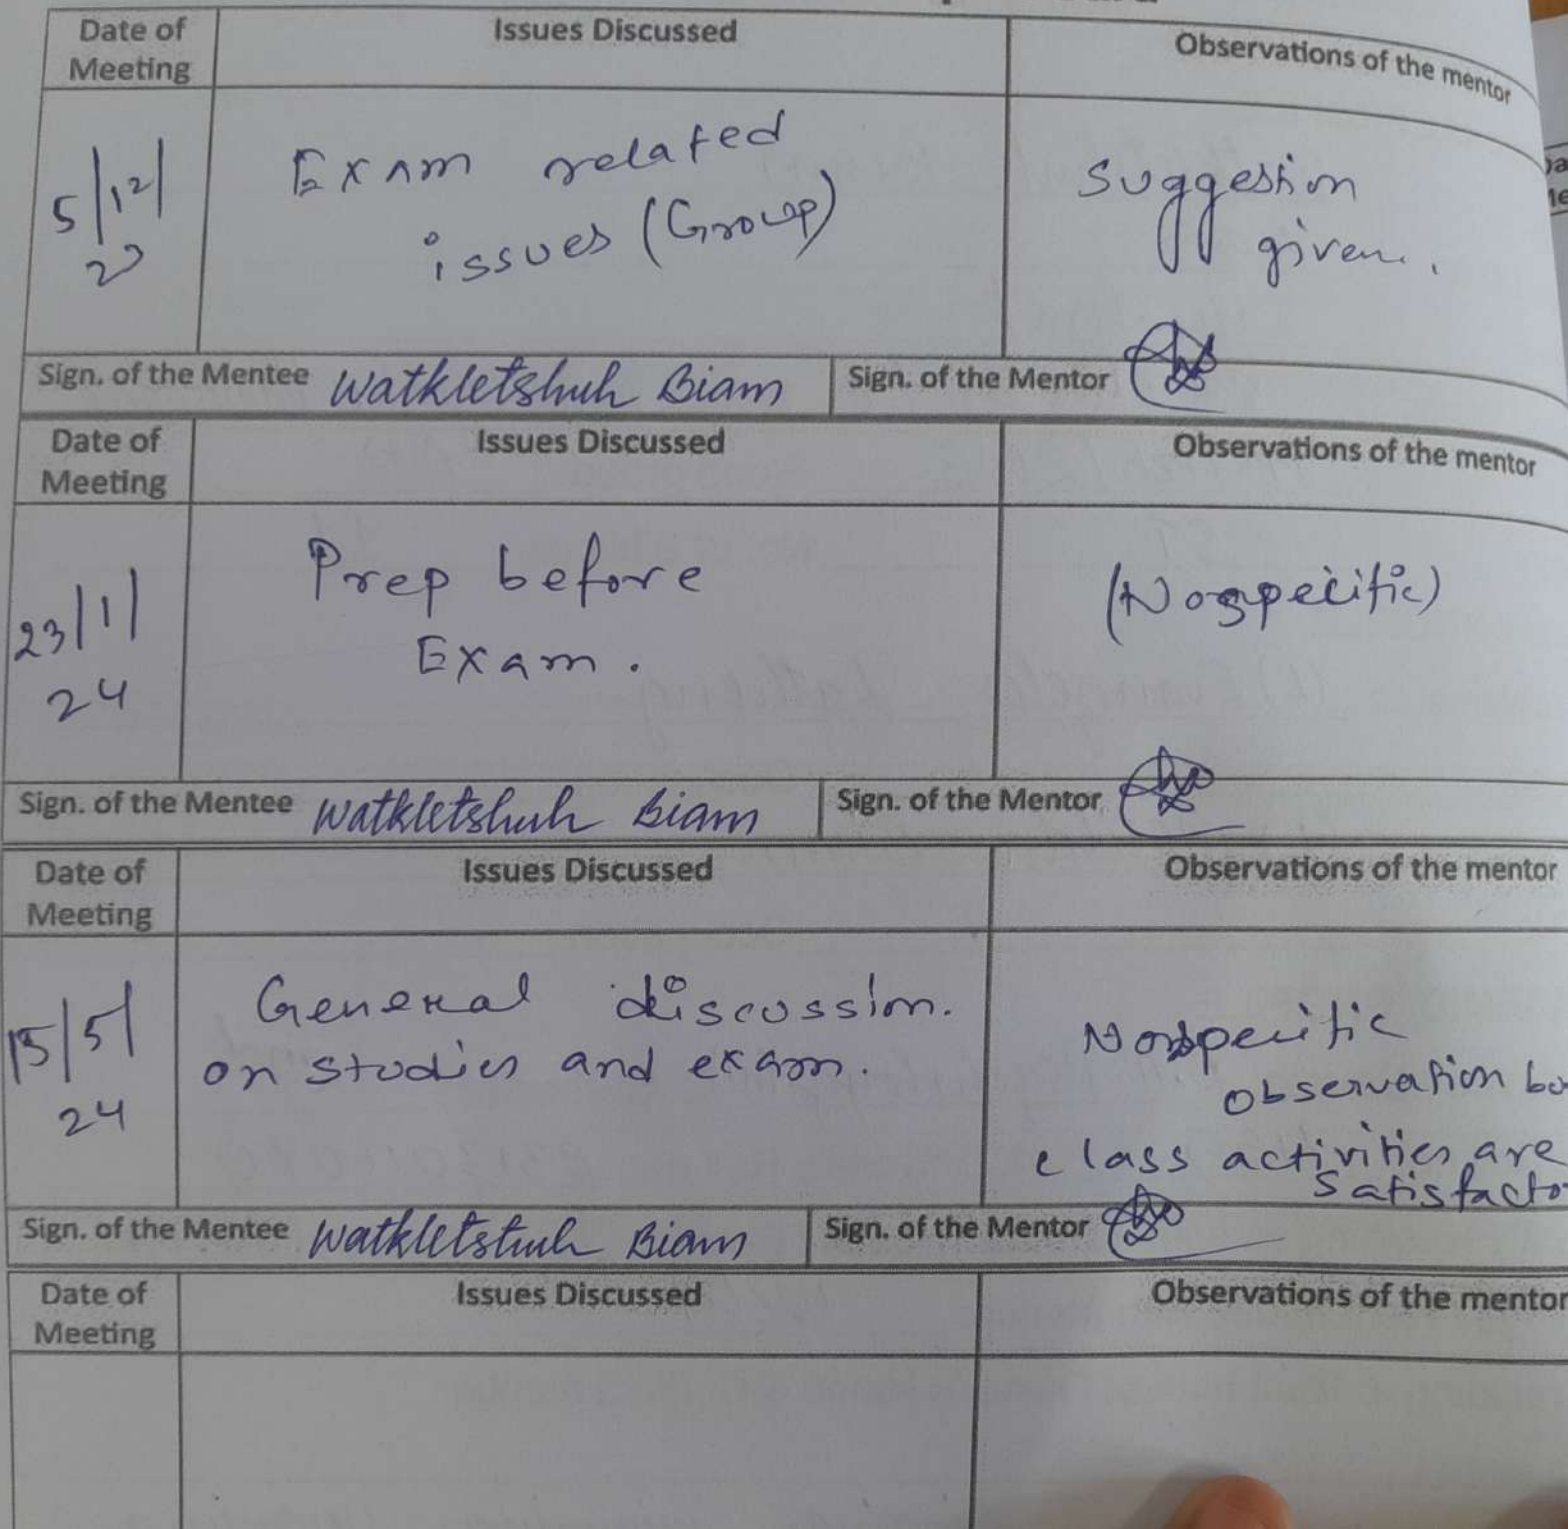 Date of Meeting
Issues Discussed
Observations of the mentor
5/12/
23
Exam related
issues (Group)
Suggestion
given.
Sign. of the Mentee Watkletshuh Biam
Sign. of the Mentor
Date of Meeting
Issues Discussed
Observations of the mentor
23/1/
24
Prep before
Exam.
(Nospecific)
Sign. of the Mentee Watkletshuh Biam
Sign. of the Mentor
Date of Meeting
Issues Discussed
Observations of the mentor
15/5/
24
General discussion.
on studies and exam.
Nospecific
observation bu
class activities are
Satisfacto
Sign. of the Mentee Watkletshuh Biam
Sign. of the Mentor
Date of Meeting
Issues Discussed
Observations of the mentor